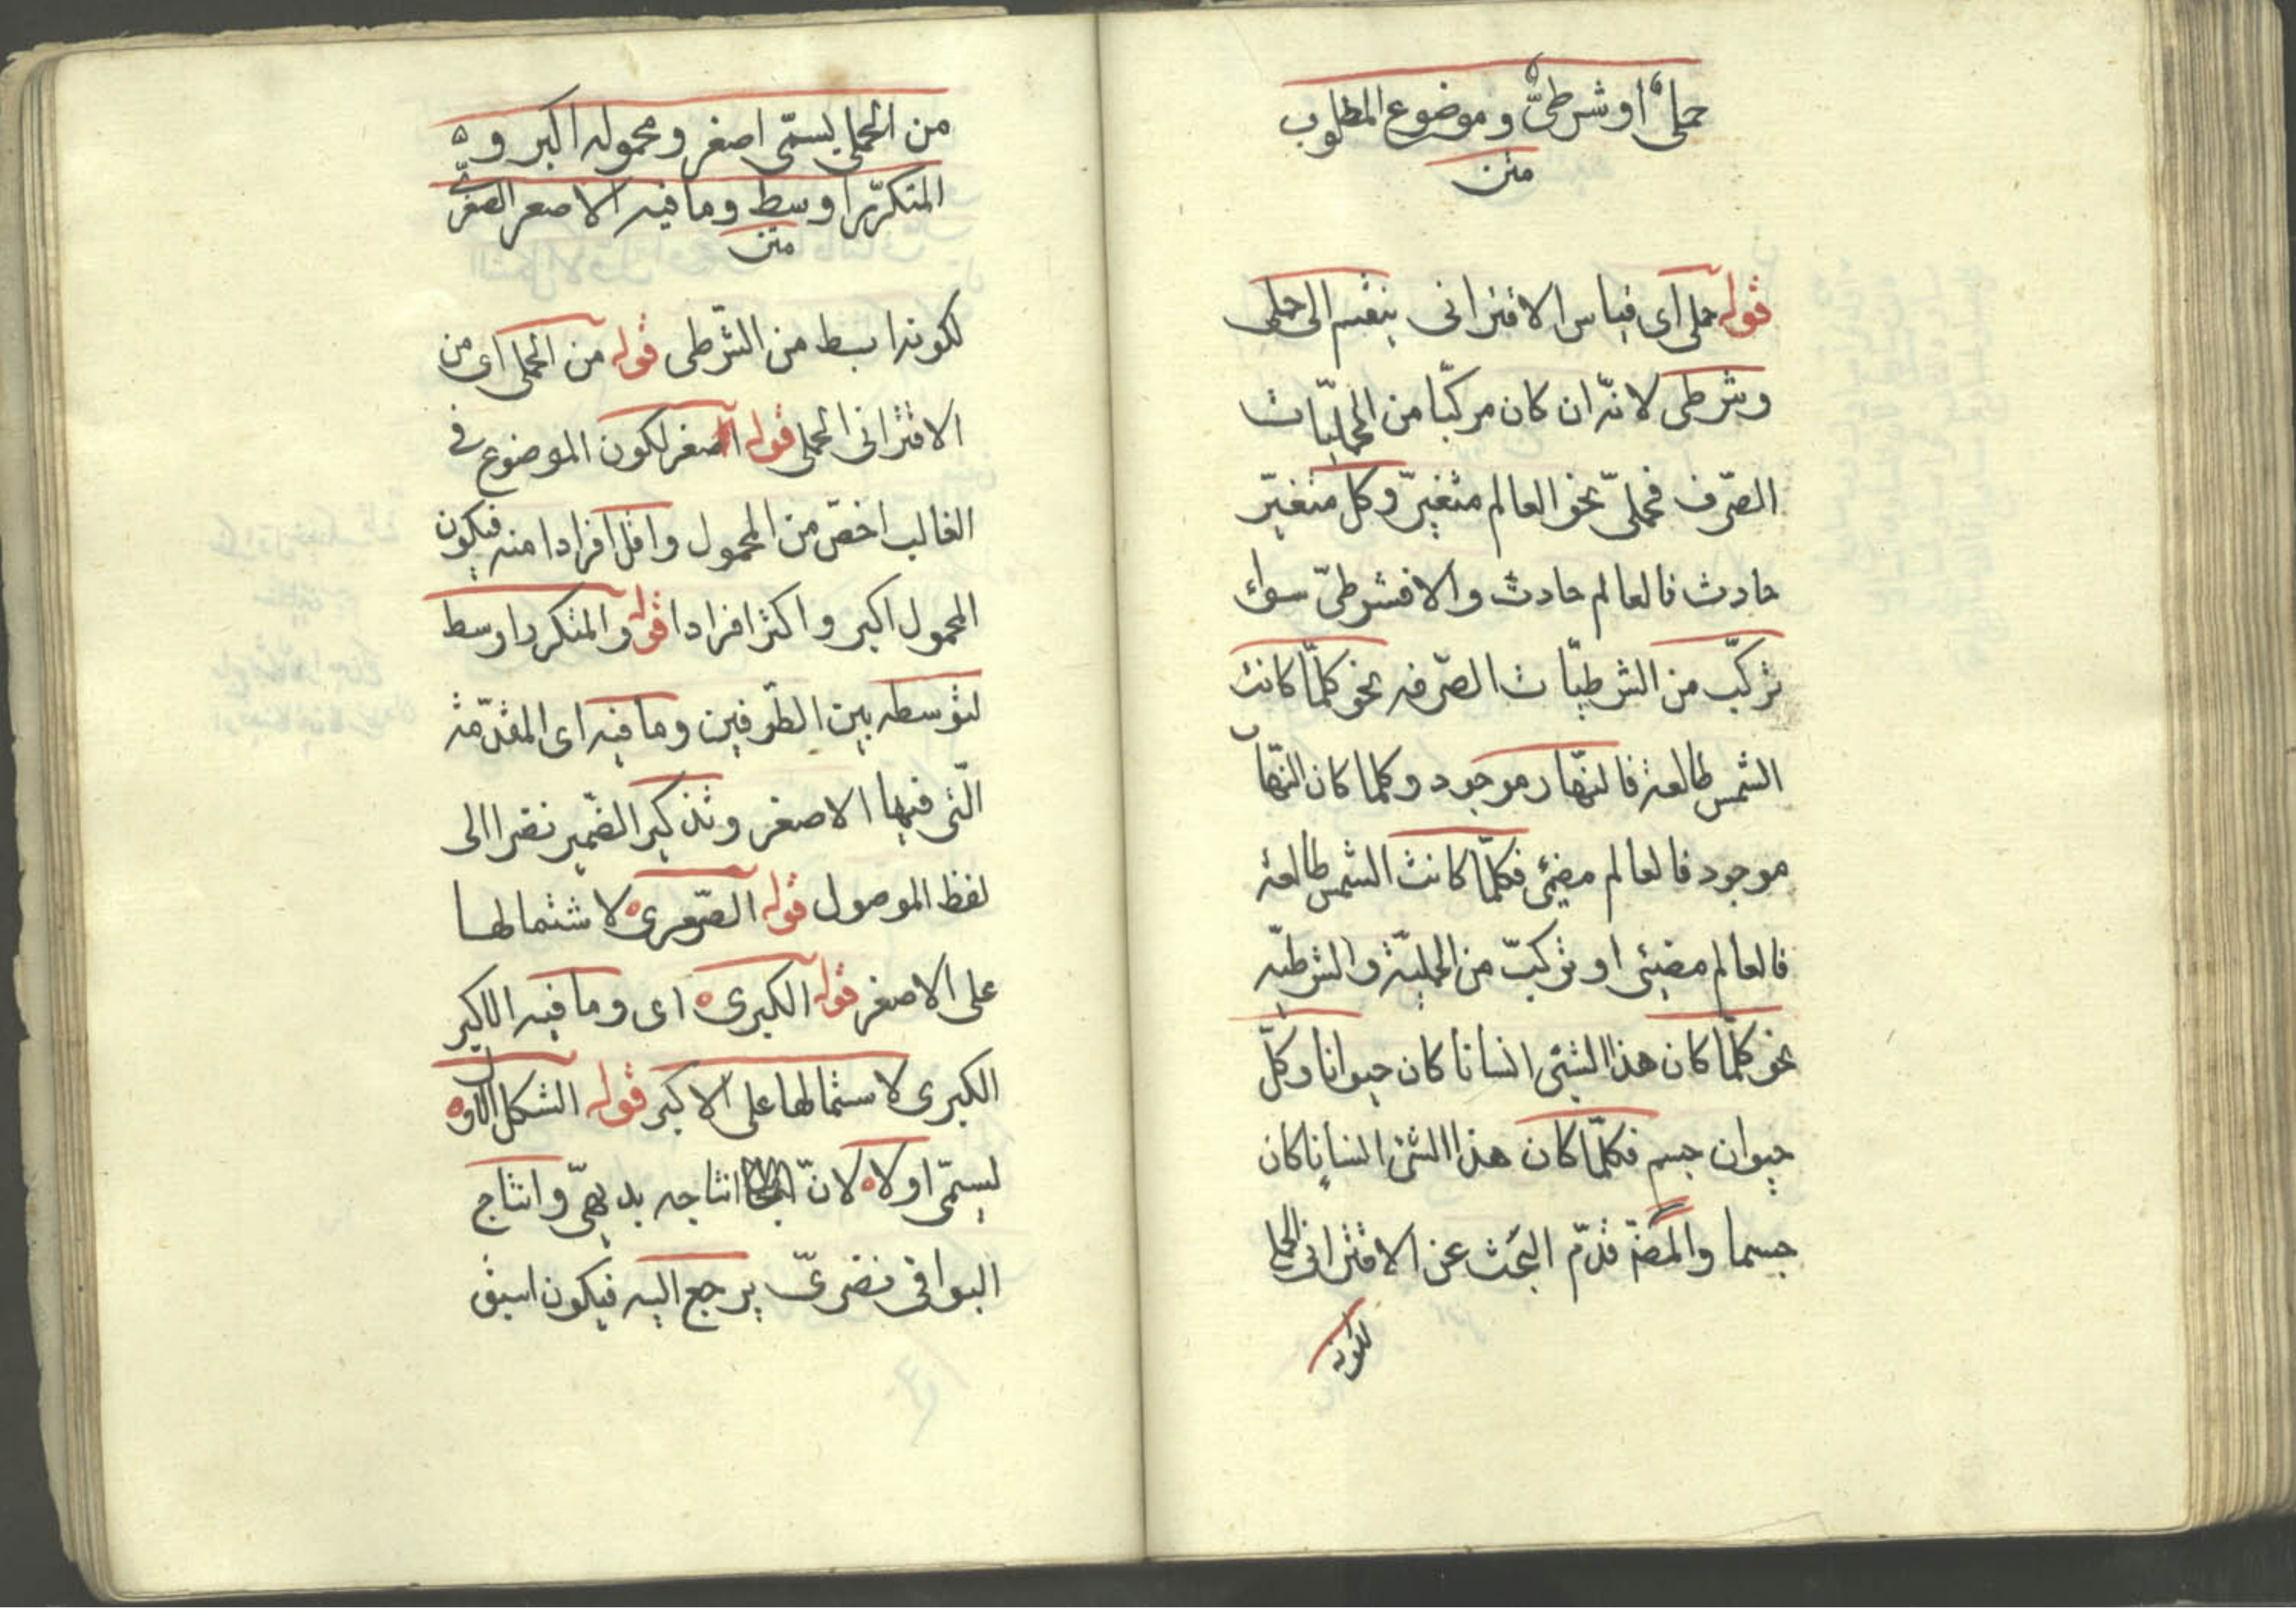 حملىّ او شرطىّ و موضوع المطلوب
متن
قوله حملى اى قياس الاقترانى ينقسم الى حملى
وشرطى لانّه ان كان مركّبا من الحمليّات
الصّرف فحملىّ نحو العالم متغيّر وكل متغيّر
حادث فالعالم حادث والا فشرطىّ سواء
تركّب من الشرطيّات الصّرفه نحو كلّما كانت
الشمس طالعة فالنّهار موجود وكلما كان النّهار
موجود فالعالم مضئى فكلّما كانت الشمس طالعة
فالعالم مضيئى او تركّب من الحمليّة والشرطيّه
نحو كلّما كان هذا الشئى انسانا كان حيوانا وكلّ
حيوان جسم فكلّما كان هذا الشئ انسانا كان
جسما والمص قدّم البحث عن الاقترانى الحملى
لكونه
من الحملى يسمّى اصغر ومحموله اكبر و
المتكرّر اوسط وما فيه الاصغر الصغرى
متن
لكونه ابسط من الشّرطى قوله من الحملى اى من
الاقترانى الحملى قوله اصغر لكون الموضوع فى
الغالب اخصّ من المحمول واقل افرادا منه فيكون
المحمول اكبر واكثر افرادا قوله والمتكرر اوسط
لتوسطه بين الطّرفين وما فيه اى المقدّمة
الّتى فيها الاصغر وتذكير الضّمير نضرا الى
لفظ الموصول قوله الصّغرى لاشتمالها
على الاصغر قوله الكبرى اى وما فيه الاكبر
الكبرى لاستمالها على الاكبر قوله الشكل الاول
يسمّى اولا لانّ انتاجه بديهىّ وانتاج
البواقى نضرىّ يرجع اليه فيكون اسبق